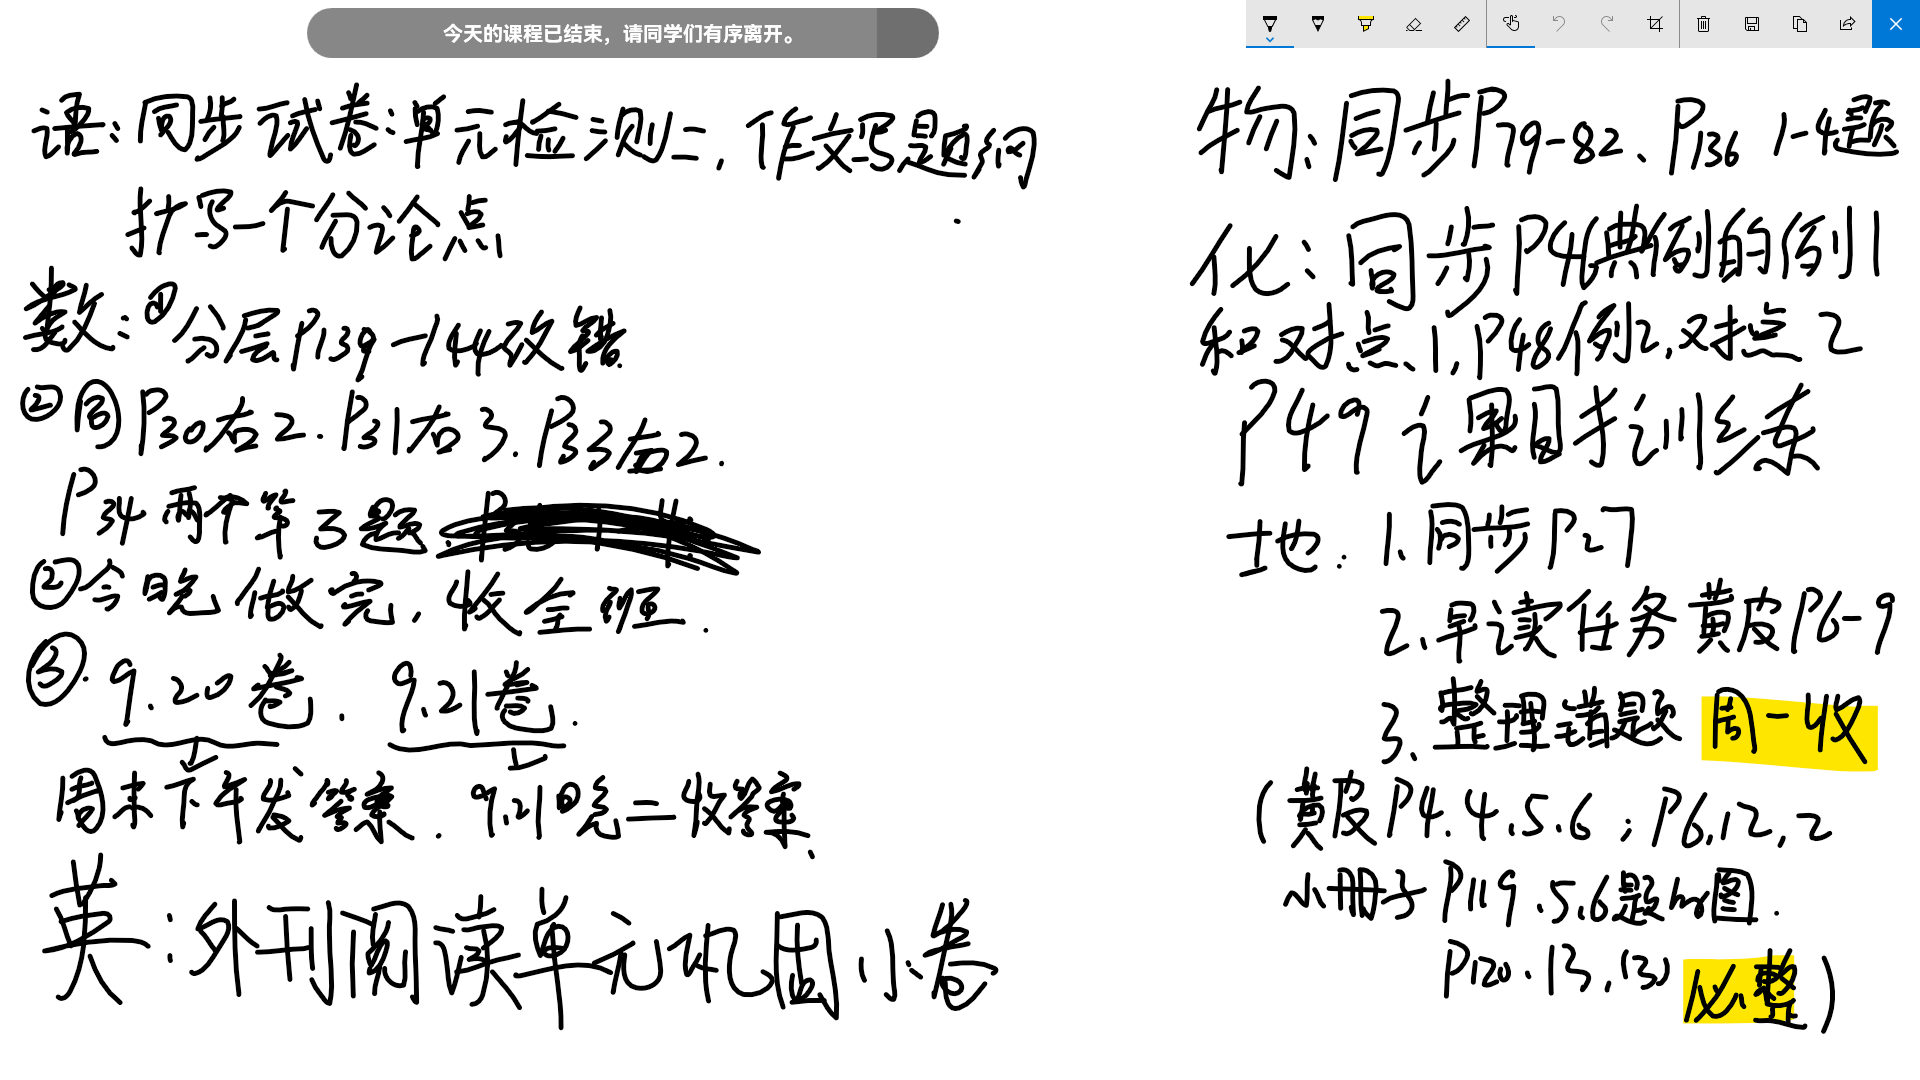 今天的课程已结束，请同学们有序离开。
语：同步试卷：单元检测二，作文写题纲
抄写一个分论点
数：①分层P139-144改错
②同P30右2.P31右3.P33右2.
P34两个第3题
②今晚做完，收全班.
③.9.20卷.9.21卷.
周末下午发答案.9.21日晚二收答案
英：外刊阅读单元巩固小卷
物：同步P79-82、P136 1-4题
化：同步P46典例的例1
和对点、1,P48例2,对点2
P49课目扌训练
地：1、同步P27
2、早读任务黄皮P6-9
3、整理错题 周一收
(黄皮P4.4.5.6；P6.12,2
小册子P119.5.6题的图.
P120.13,(3) 必整)